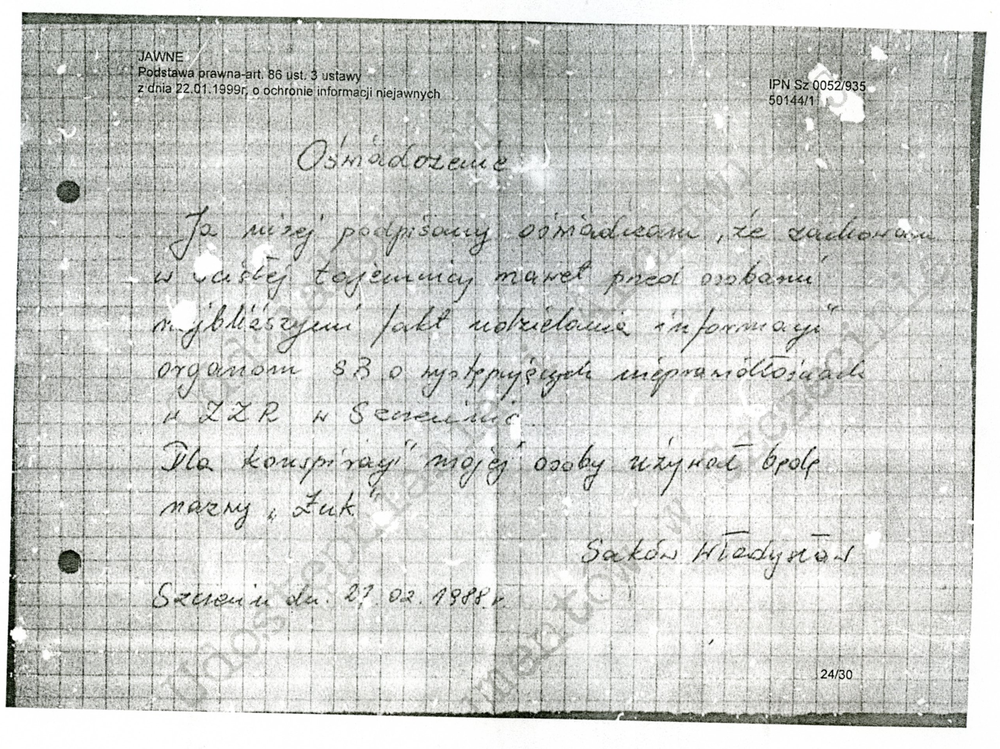 JAWNE
Podstawa prawna-art. 86 ust. 3 ustawy
z dnia 22.01.1999r, o ochronie informacji niejawnych
IPN Sz 0052/935
50144/1
Oświadczenie
Ja niżej podpisany oświadczam, że zachowam
w ścisłej tajemnicy nawet przed osobami
najbliższymi fakt udzielania informacji
organom SB o występujących nieprawidłościach
w ZZR w Szczecinie
Dla konspiracji mojej osoby używał będę
nazwy "Żuk"
Saków Władysław
Szczecin dn. 27 02. 1988 r.
24/30